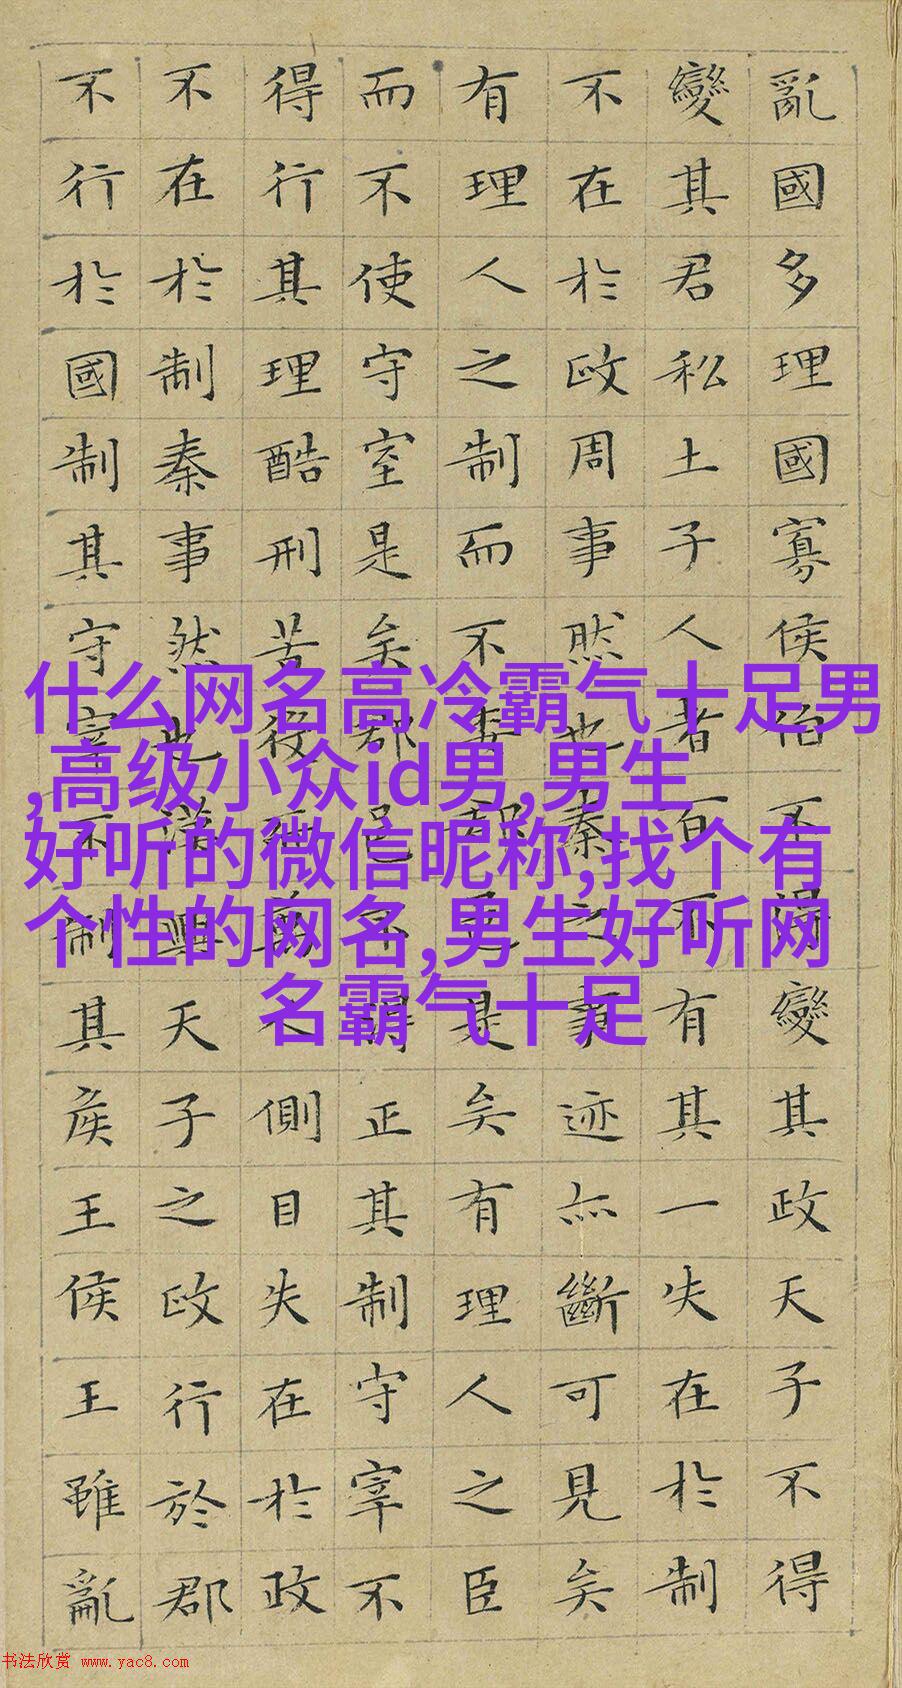 亂國多理國寡侯伯不得變其政天子不得
變其君私土子人者百不有其一失在於制
不在於政周事然也秦之事迹亦斷可見矣
有理人之制而不委郡邑是矣有理人之臣
而不使守宰是矣郡邑不得正其制守宰不
得行其理酷刑苦役而萬人側目失在於政
不在於制秦事然也漢興天子之政行於郡
不行於國制其守宰不制其侯王侯王雖亂
什么网名高冷霸气十足男
,高级小众id男,男生
好听的微信昵称,找个有
个性的网名,男生好听网
名霸气十足
书法欣赏 www.yac8.com